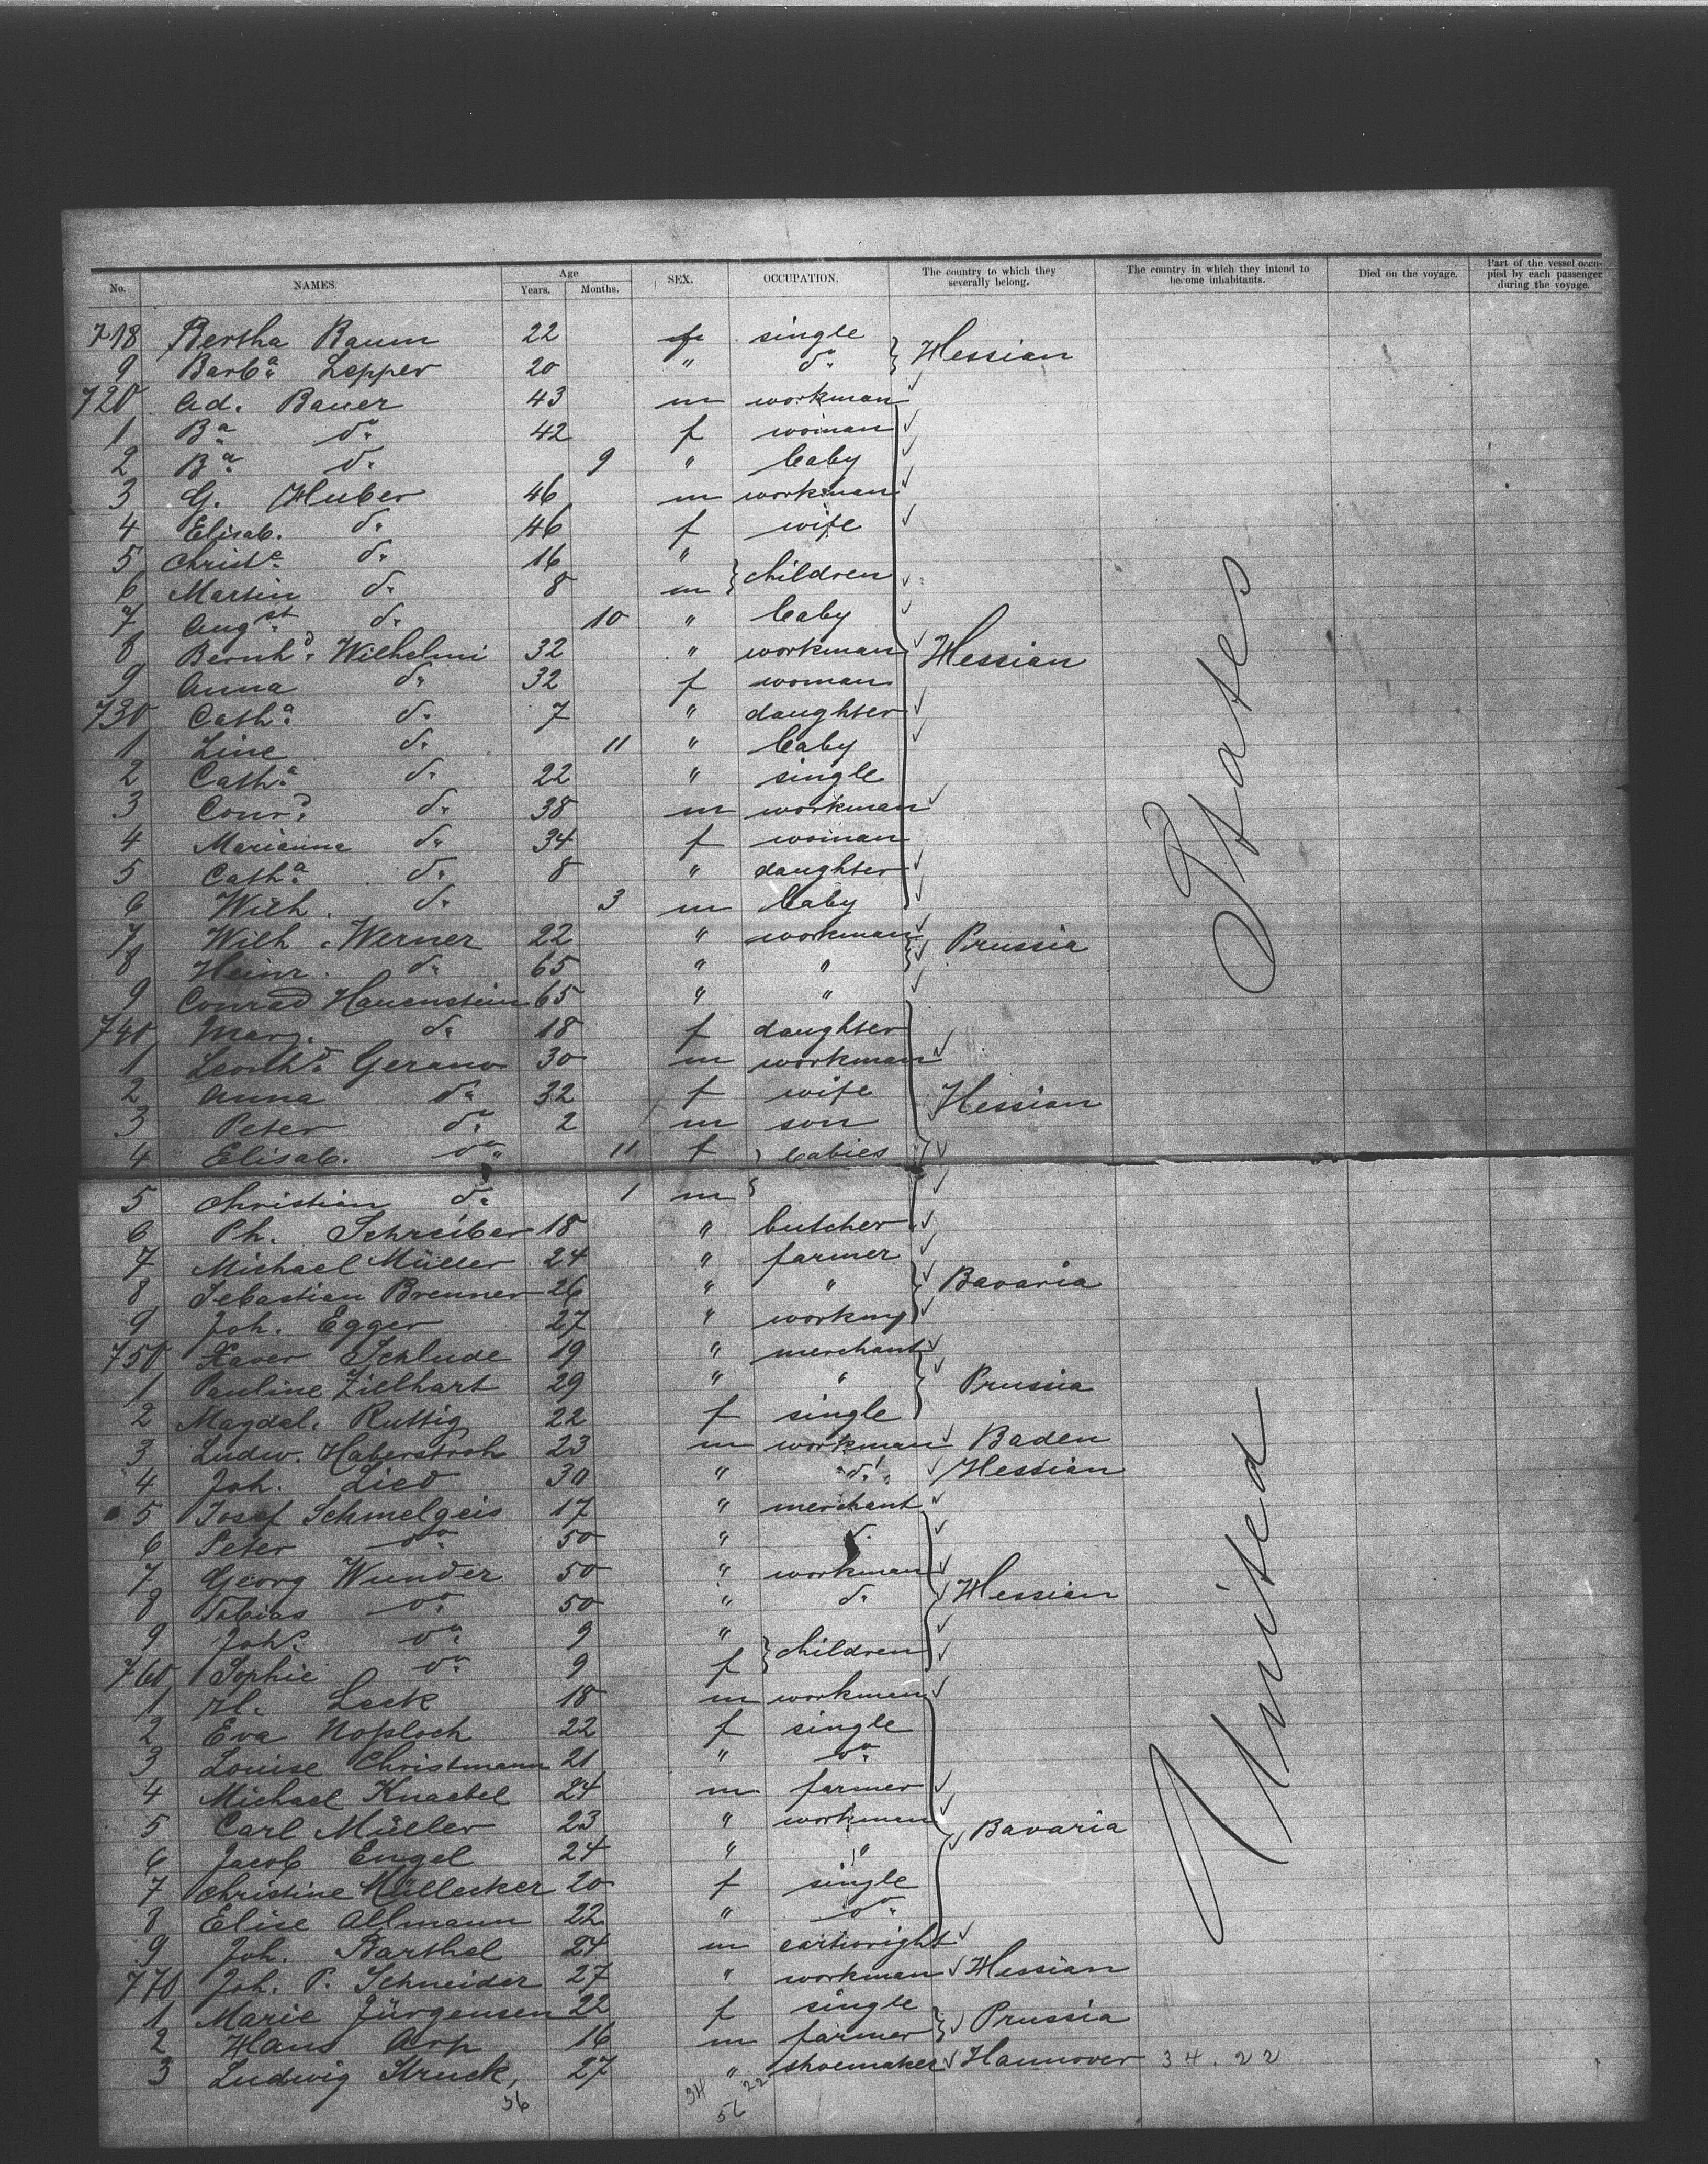 No. NAMES. Age Years. Months. SEX. OCCUPATION. The country to which they severally belong. The country in which they intend to become inhabitants. Died on the voyage. Part of the vessel occupied by each passenger during the voyage.
718 Bertha Baum 22 f single
9 Barba. Lepper 20 " do. } Hessian
720 Ad. Bauer 43 m workman
1 Ba. do. 42 f woman
2 Ba. do. 9 " baby
3 G. Huber 46 m workman
4 Elisab. do. 46 f wife
5 Christe. do. 16 " } children
6 Martin do. 8 m
7 Augst. do. 10 " baby
8 Bernhd. Wilhelmi 32 " workman Hessian
9 Anna do. 32 f woman
730 Catha. do. 7 " daughter
1 Line do. 11 " baby
2 Catha. do. 22 " single
3 Conrd. do. 38 m workman
4 Marianne do. 34 f woman
5 Catha. do. 8 " daughter
6 Wilh. do. 3 m baby
7 Wilh. Werner 22 " workman } Prussia
8 Heinr. do. 65 " "
9 Conrad Hauenstein 65 " "
740 Marg. do. 18 f daughter
1 Leonhd. Gerano 30 m workman
2 Anna do. 32 f wife Hessian
3 Peter do. 2 m son
4 Elisab. do. 11 f } babies
5 Christian do. 1 m
6 Ph. Schreiber 18 " butcher
7 Michael Müller 24 " farmer
8 Sebastian Brenner 26 " " } Bavaria
9 Joh. Egger 27 " workmg
750 Xaver Schlude 19 " merchant
1 Pauline Zielhart 29 " " } Prussia
2 Magdal. Ruttig 22 f single
3 Ludw. Haberstroh 23 m workman Baden
4 Joh. Lied 30 " do. Hessian
5 Josef Schmelgeis 17 " merchant
6 Peter do. 50 " do.
7 Georg Wunder 50 " workman
8 Tobias do. 50 " do. Hessian
9 Johs. do. 9 " } children
760 Sophie do. 9 f
1 Leck 18 m workman
2 Eva Noßloch 22 f single
3 Louise Christmann 21 " do.
4 Michael Knaebel 24 m farmer
5 Carl Müller 23 " workman Bavaria
6 Jacob Engel 24 " "
7 Christine Müllecker 20 f single
8 Elise Allmann 22 " do.
9 Joh. Barthel 24 m cartwright
770 Joh. P. Schneider 27 " workman Hessian
1 Marie Jürgensen 22 f single } Prussia
2 Hans Arp 16 m farmer
3 Ludwig Struck, 27 " shoemaker Hannover 34. 22
56 34 22
56
United States